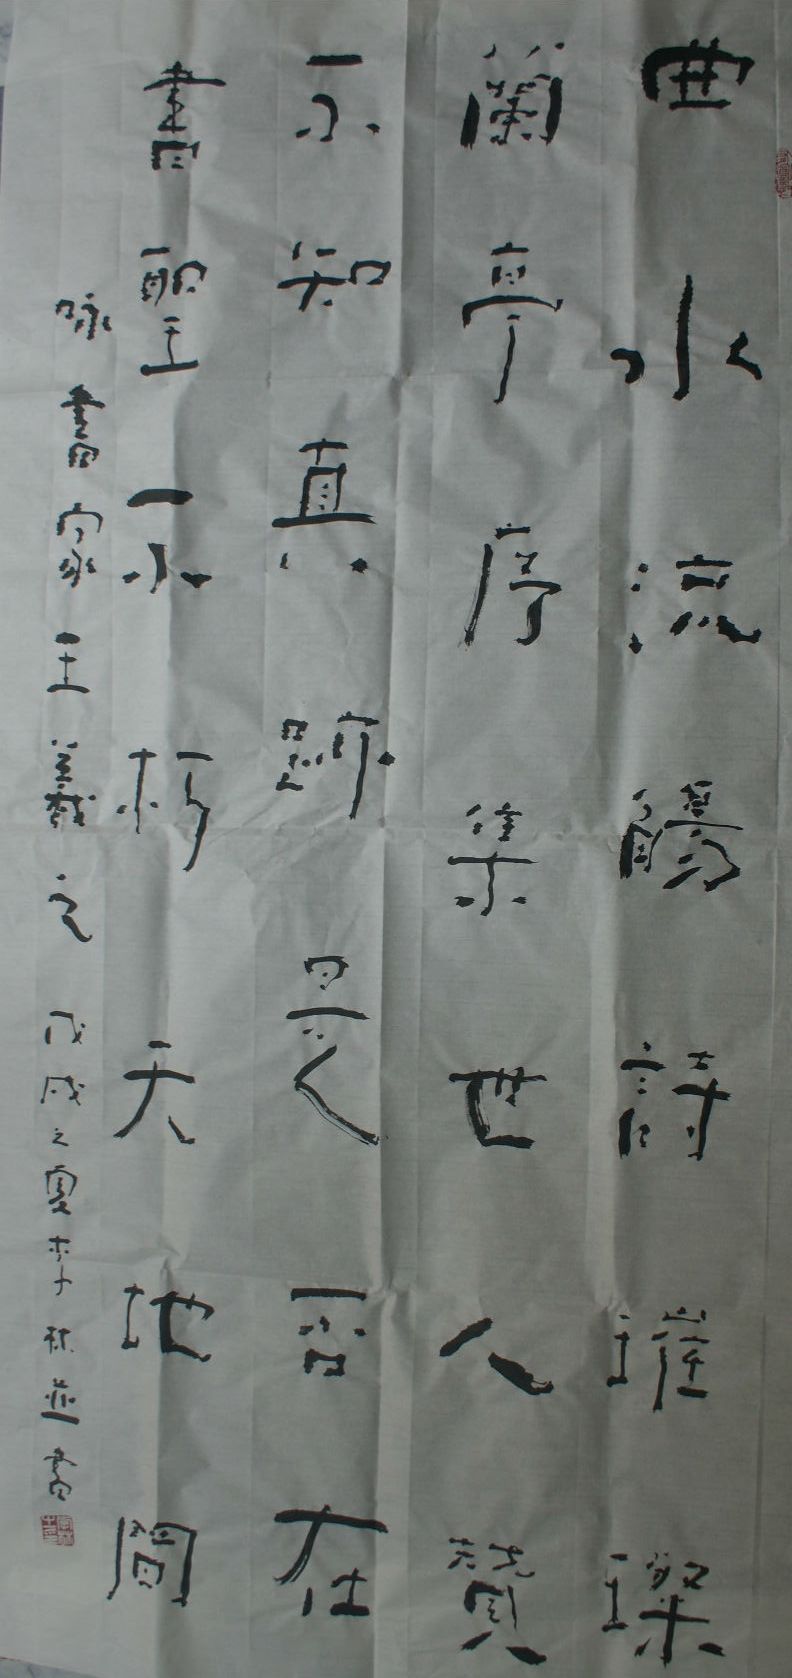 曲水流觴詩璀璨
蘭亭序集世人贊
不知真跡是否在
書聖不朽天地間
咏書家王羲之 戊戌之夏李林並書